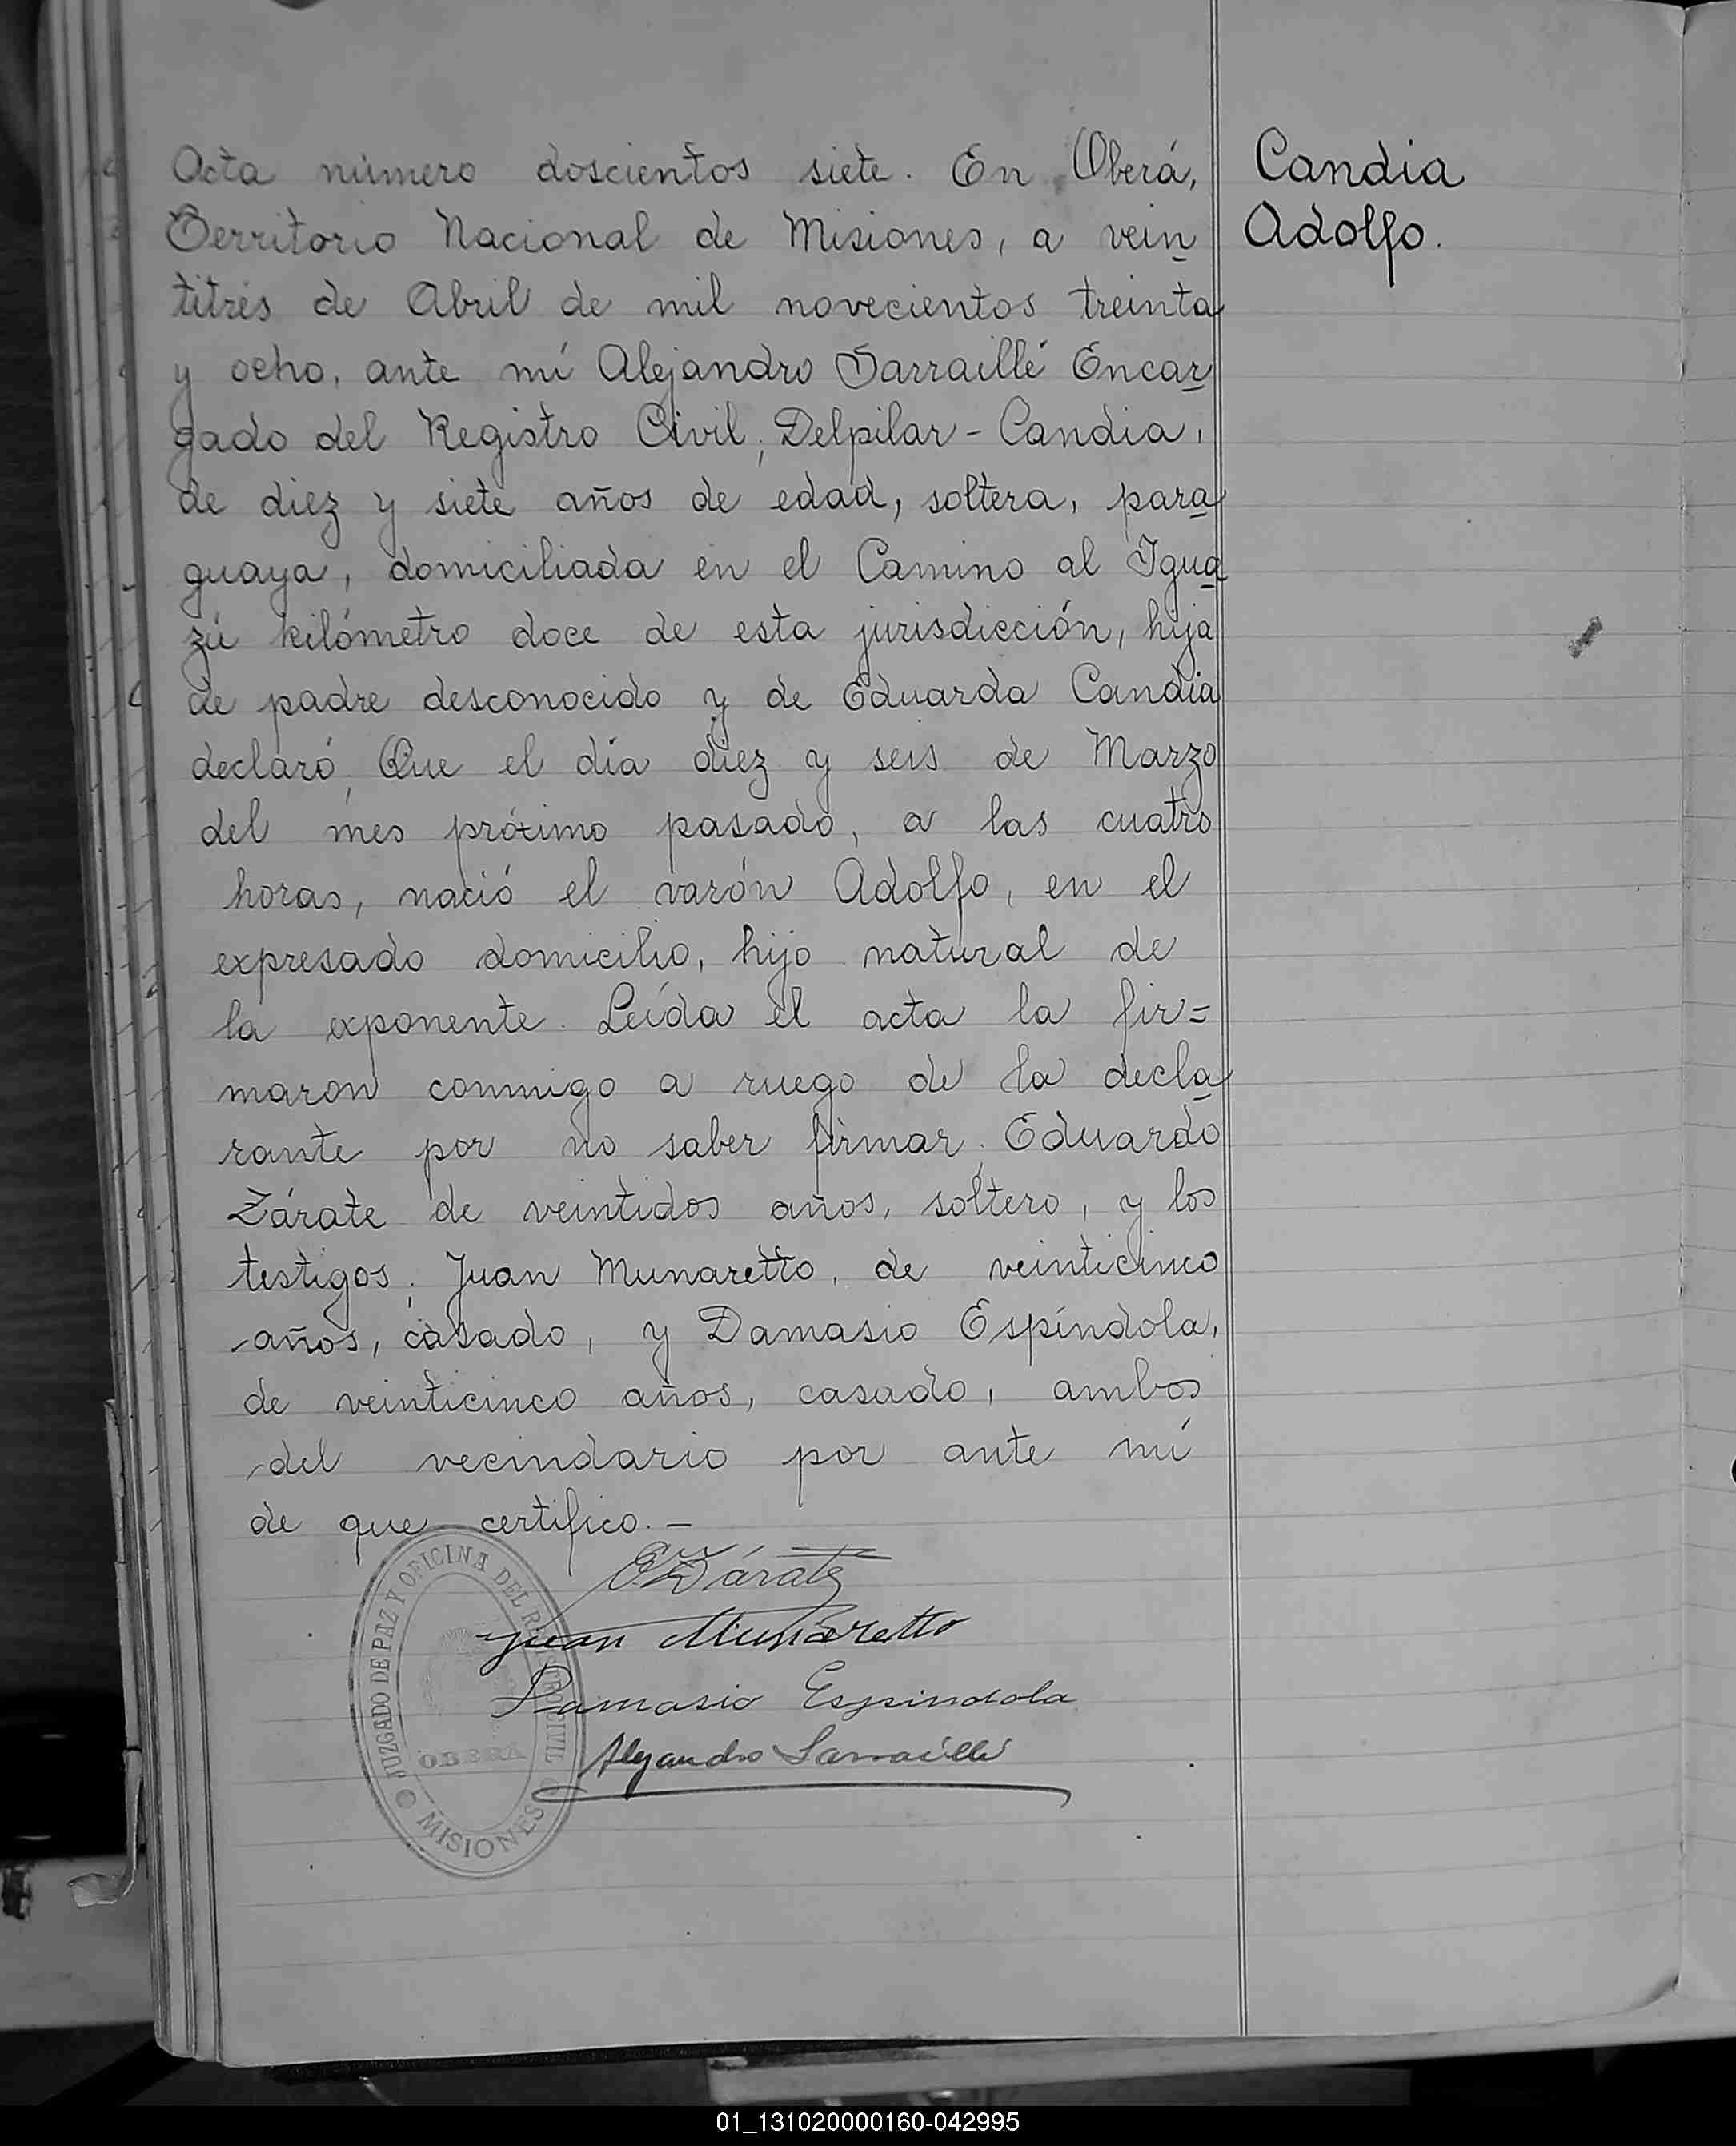 Acta número doscientos siete. En Oberá,
Territorio Nacional de Misiones, a vein
titrés de Abril de mil novecientos treinta
y ocho, ante mí Alejandro Sarraillé Encar
gado del Registro Civil; Delpilar - Candia,
de diez y siete años de edad, soltera, para
guaya, domiciliada en el Camino al Igua
zú kilómetro doce de esta jurisdicción, hija
de padre desconocido y de Eduarda Candia
declaró, Que el día diez y seis de Marzo
del mes próximo pasado, a las cuatro
horas, nació el varón Adolfo, en el
expresado domicilio, hijo natural de
la exponente. Leída el acta la fir=
maron conmigo a ruego de la decla
rante por no saber firmar; Eduardo
Zárate de veintidos años, soltero, y los
testigos; Juan Munaretto, de veinticinco
años, casado, y Damasio Espíndola,
de veinticinco años, casado, ambos
del vecindario por ante mí
de que certifico.-
Candia
Adolfo.
E. Zárate
Juan Munaretto
Damasio Espindola
Alejandro Sarraillé
JUZGADO DE PAZ Y OFICINA DEL REGISTRO CIVIL
OBERÁ
MISIONES
01_131020000160-042995